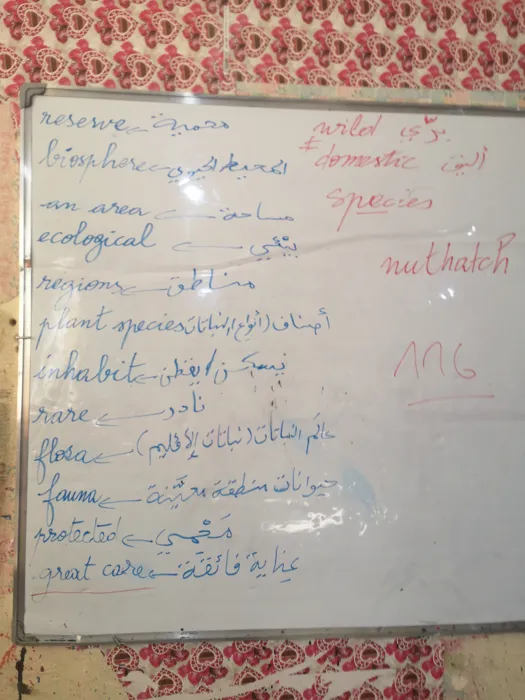 reserve → محمية
biosphere → المحيط الحيوي
an area → مساحة
ecological → بيئي
regions → مناطق
plant species أصناف (أنواع النباتات
inhabit → يسكن / يقطن
rare → نادر
flora → عالم النباتات (نباتات الإقليم)
fauna → حيوانات منطقة معينة
protected → مَحْمِي
great care → عناية فائقة
wild برّي
≠ domestic أليف
species
nuthatch
116